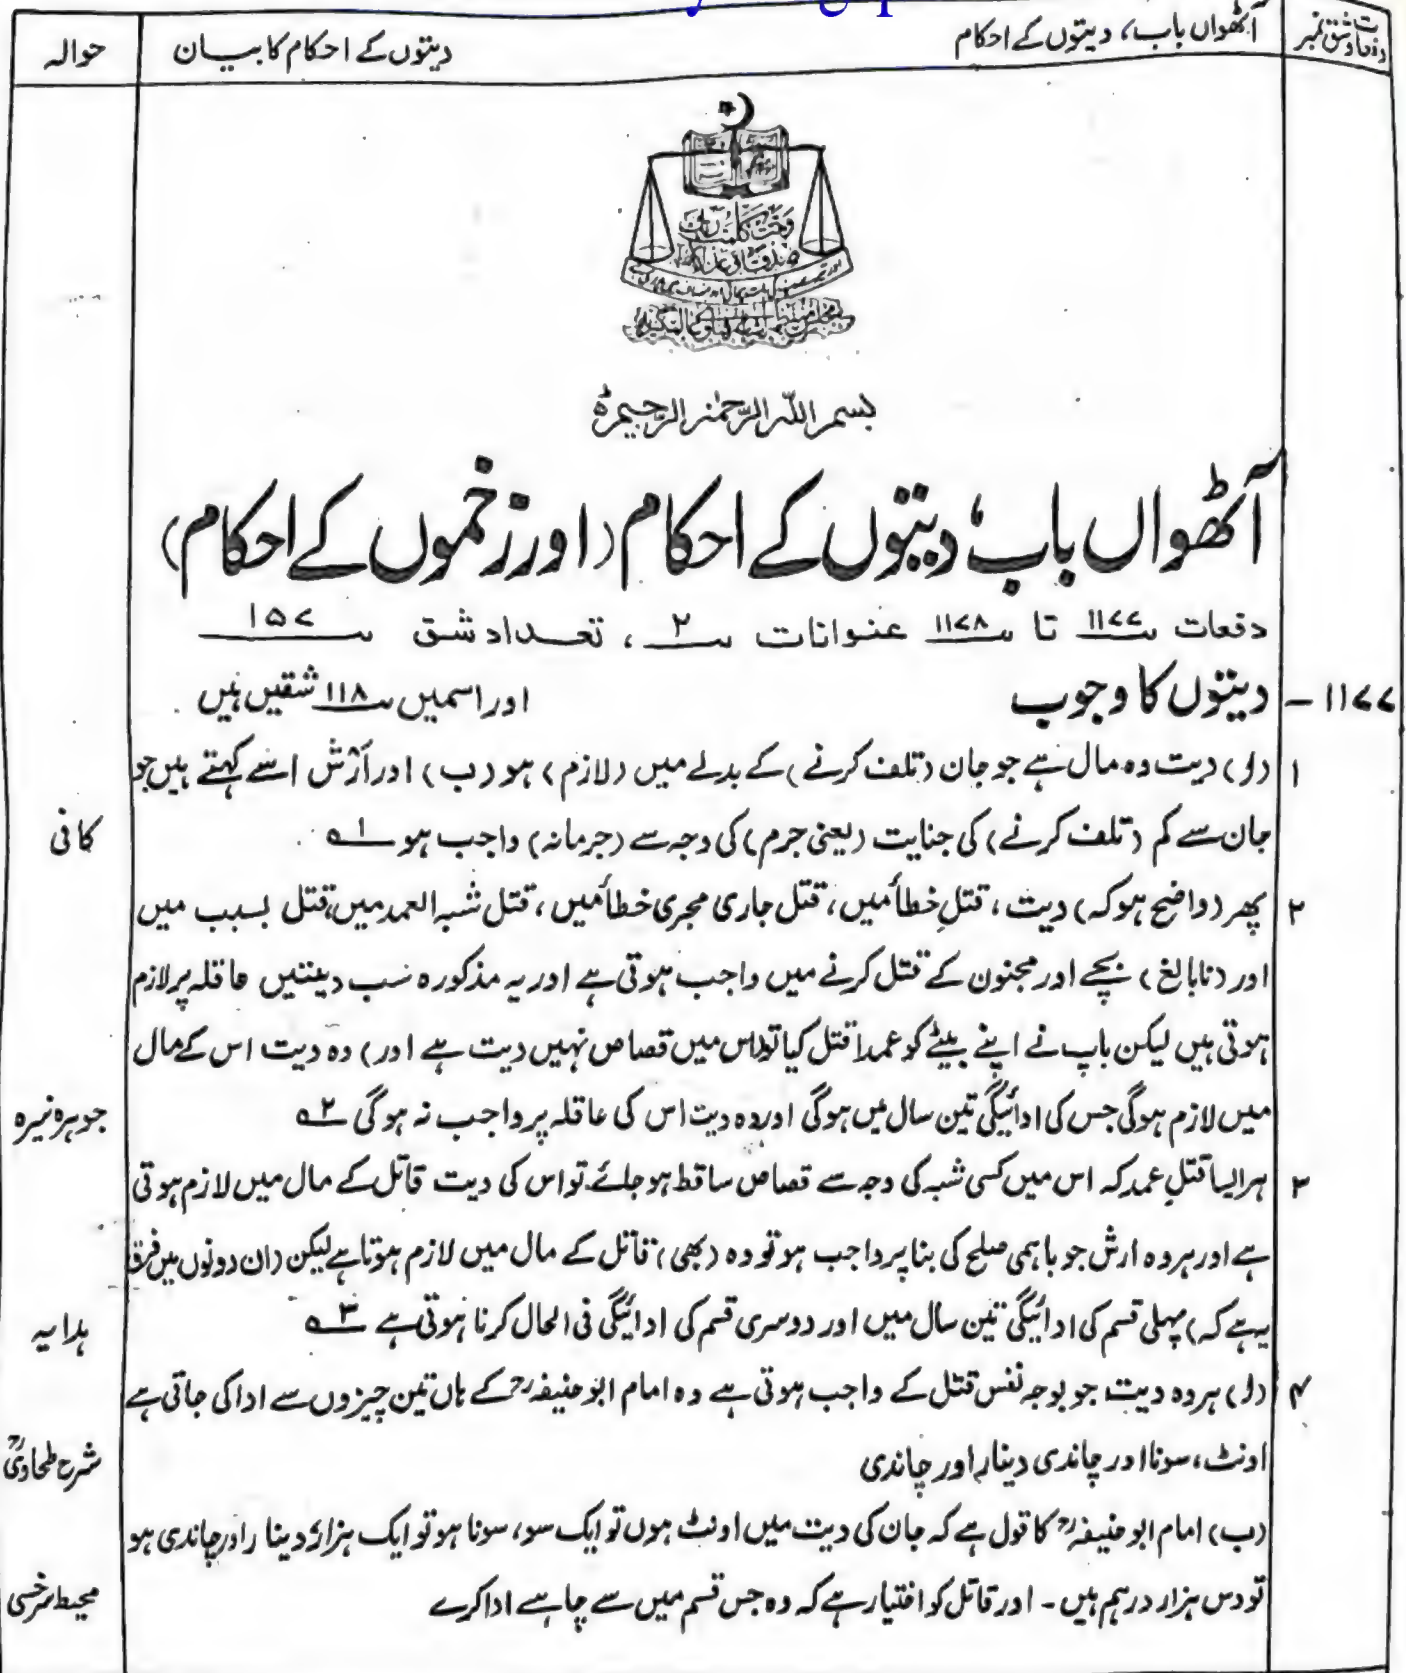 دفعات و شق نمبر
آٹھواں باب، دیتوں کے احکام
دیتوں کے احکام کا بیان
حوالہ
بسم اللہ الرحمٰن الرحیم
آٹھواں باب؛ دیتوں کے احکام (اور زخموں کے احکام)
دفعات ۱۱۷۷ تا ۱۱۷۸ عنوانات ۲، تعداد شق ۱۵۷
۱۱۷۷ - دیتوں کا وجوب اور اسمیں ۱۱۸ شقیں ہیں
۱ (ا) دیت وہ مال ہے جو جان (تلف کرنے) کے بدلے میں (لازم) ہو (ب) اور اَرْش اسے کہتے ہیں جو
جان سے کم (تلف کرنے) کی جنایت (یعنی جرم) کی وجہ سے (جرمانہ) واجب ہو ۱ھ
کافی
۲ پھر (واضح ہوکہ) دیت، قتلِ خطأ میں، قتل جاری مجری خطأ میں، قتل شبہ العمد میں، قتل بسبب میں
اور (نابالغ) بچے اور مجنون کے قتل کرنے میں واجب ہوتی ہے اور یہ مذکورہ سب دیتیں عاقلہ پر لازم
ہوتی ہیں لیکن باپ نے اپنے بیٹے کو عمداً قتل کیا تو (اس میں قصاص نہیں دیت ہے اور) وہ دیت اس کے مال
میں لازم ہوگی جس کی ادائیگی تین سال میں ہوگی اور وہ دیت اس کی عاقلہ پر واجب نہ ہوگی ۲ھ
جوہرہ نیرہ
۳ ہر ایسا قتلِ عمد کہ اس میں کسی شبہ کی وجہ سے قصاص ساقط ہو جائے تو اس کی دیت قاتل کے مال میں لازم ہوتی
ہے اور ہر وہ ارش جو باہمی صلح کی بنا پر واجب ہو تو وہ (بھی) قاتل کے مال میں لازم ہوتا ہے لیکن (ان دونوں میں فرق
یہ ہے کہ) پہلی قسم کی ادائیگی تین سال میں اور دوسری قسم کی ادائیگی فی الحال کرنا ہوتی ہے ۳ھ
ہدایہ
۴ (ا) ہر وہ دیت جو بوجہ نفس قتل کے واجب ہوتی ہے وہ امام ابو حنیفہؒ کے ہاں تین چیزوں سے ادا کی جاتی ہے
اونٹ، سونا اور چاندی دینار اور چاندی
شرح طحاویؒ
(ب) امام ابو حنیفہؒ کا قول ہے کہ جان کی دیت میں اونٹ ہوں تو ایک سو، سونا ہو تو ایک ہزار دینار اور چاندی ہو
تو دس ہزار درہم ہیں - اور قاتل کو اختیار ہے کہ وہ جس قسم میں سے چاہے ادا کرے
محیط سرخسی